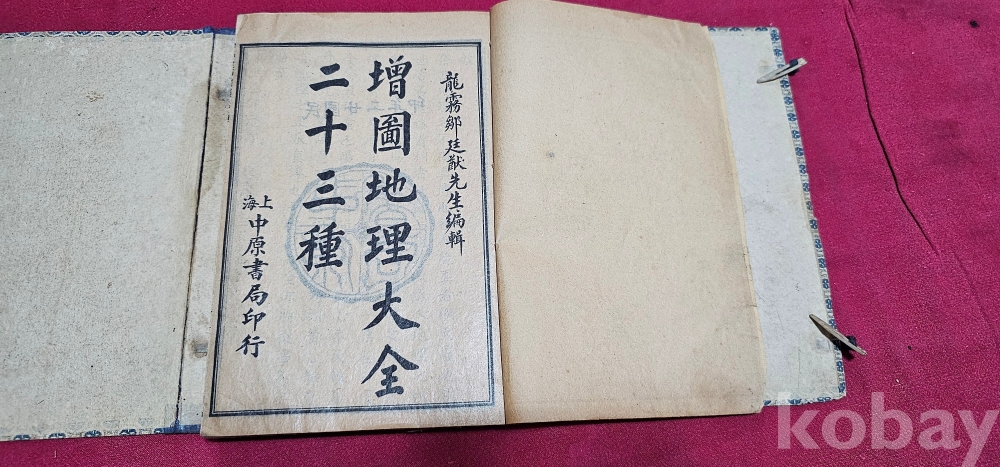 龍霧鄒廷猷先生編輯
增圖地理大全
二十三種
上海中原書局印行
民國廿二年正印
kobay